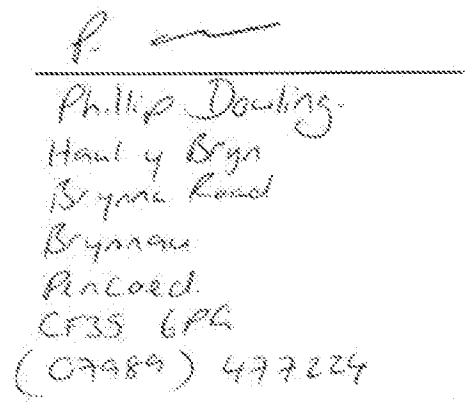 P.
Phillip Dowling.
Haul y Bryn
Brynna Road
Brynnau
Pencoed.
CF35 6PG
(07989) 477224